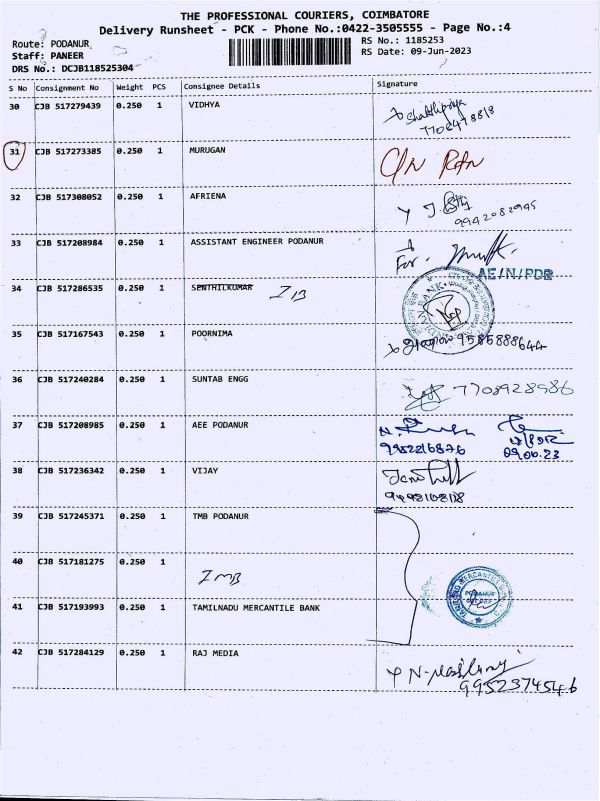 THE PROFESSIONAL COURIERS, COIMBATORE
Delivery Runsheet - PCK - Phone No.:0422-3505555 - Page No.:4
Route: PODANUR RS No.: 1185253
Staff: PANEER RS Date: 09-Jun-2023
DRS No.: DCJB118525304
S No Consignment No Weight PCS Consignee Details Signature
30 CJB 517279439 0.250 1 VIDHYA
31 CJB 517273385 0.250 1 MURUGAN
32 CJB 517308052 0.250 1 AFRIENA
9942082945
33 CJB 517208984 0.250 1 ASSISTANT ENGINEER PODANUR
For.
AE/N/PDR
34 CJB 517286535 0.250 1 SENTHILKUMAR IB
35 CJB 517167543 0.250 1 POORNIMA
9585888644
36 CJB 517240284 0.250 1 SUNTAB ENGG
7708928986
37 CJB 517208985 0.250 1 AEE PODANUR
9952216876 09.06.23
38 CJB 517236342 0.250 1 VIJAY
39 CJB 517245371 0.250 1 TMB PODANUR
40 CJB 517181275 0.250 1
41 CJB 517193993 0.250 1 TAMILNADU MERCANTILE BANK
42 CJB 517284129 0.250 1 RAJ MEDIA
9952374546